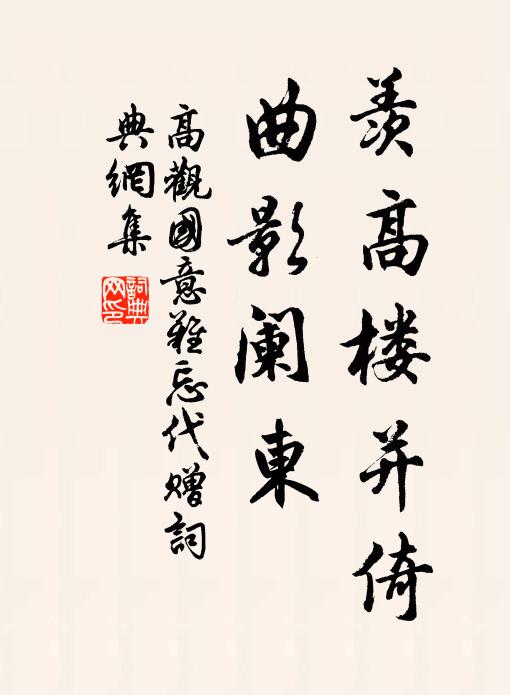 羨高楼并倚
曲影阑東
高觀國意難忘代赠詞
典網集
詞典
网印